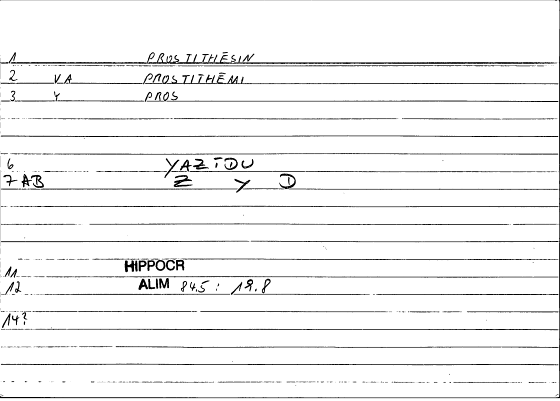 1 PROSTITHĒSIN
2 VA PROSTITHĒMI
3 Y PROS
6 YAZĪDU
7 AB Z Y D
11 HIPPOCR
12 ALIM 845 : 19.8
14?